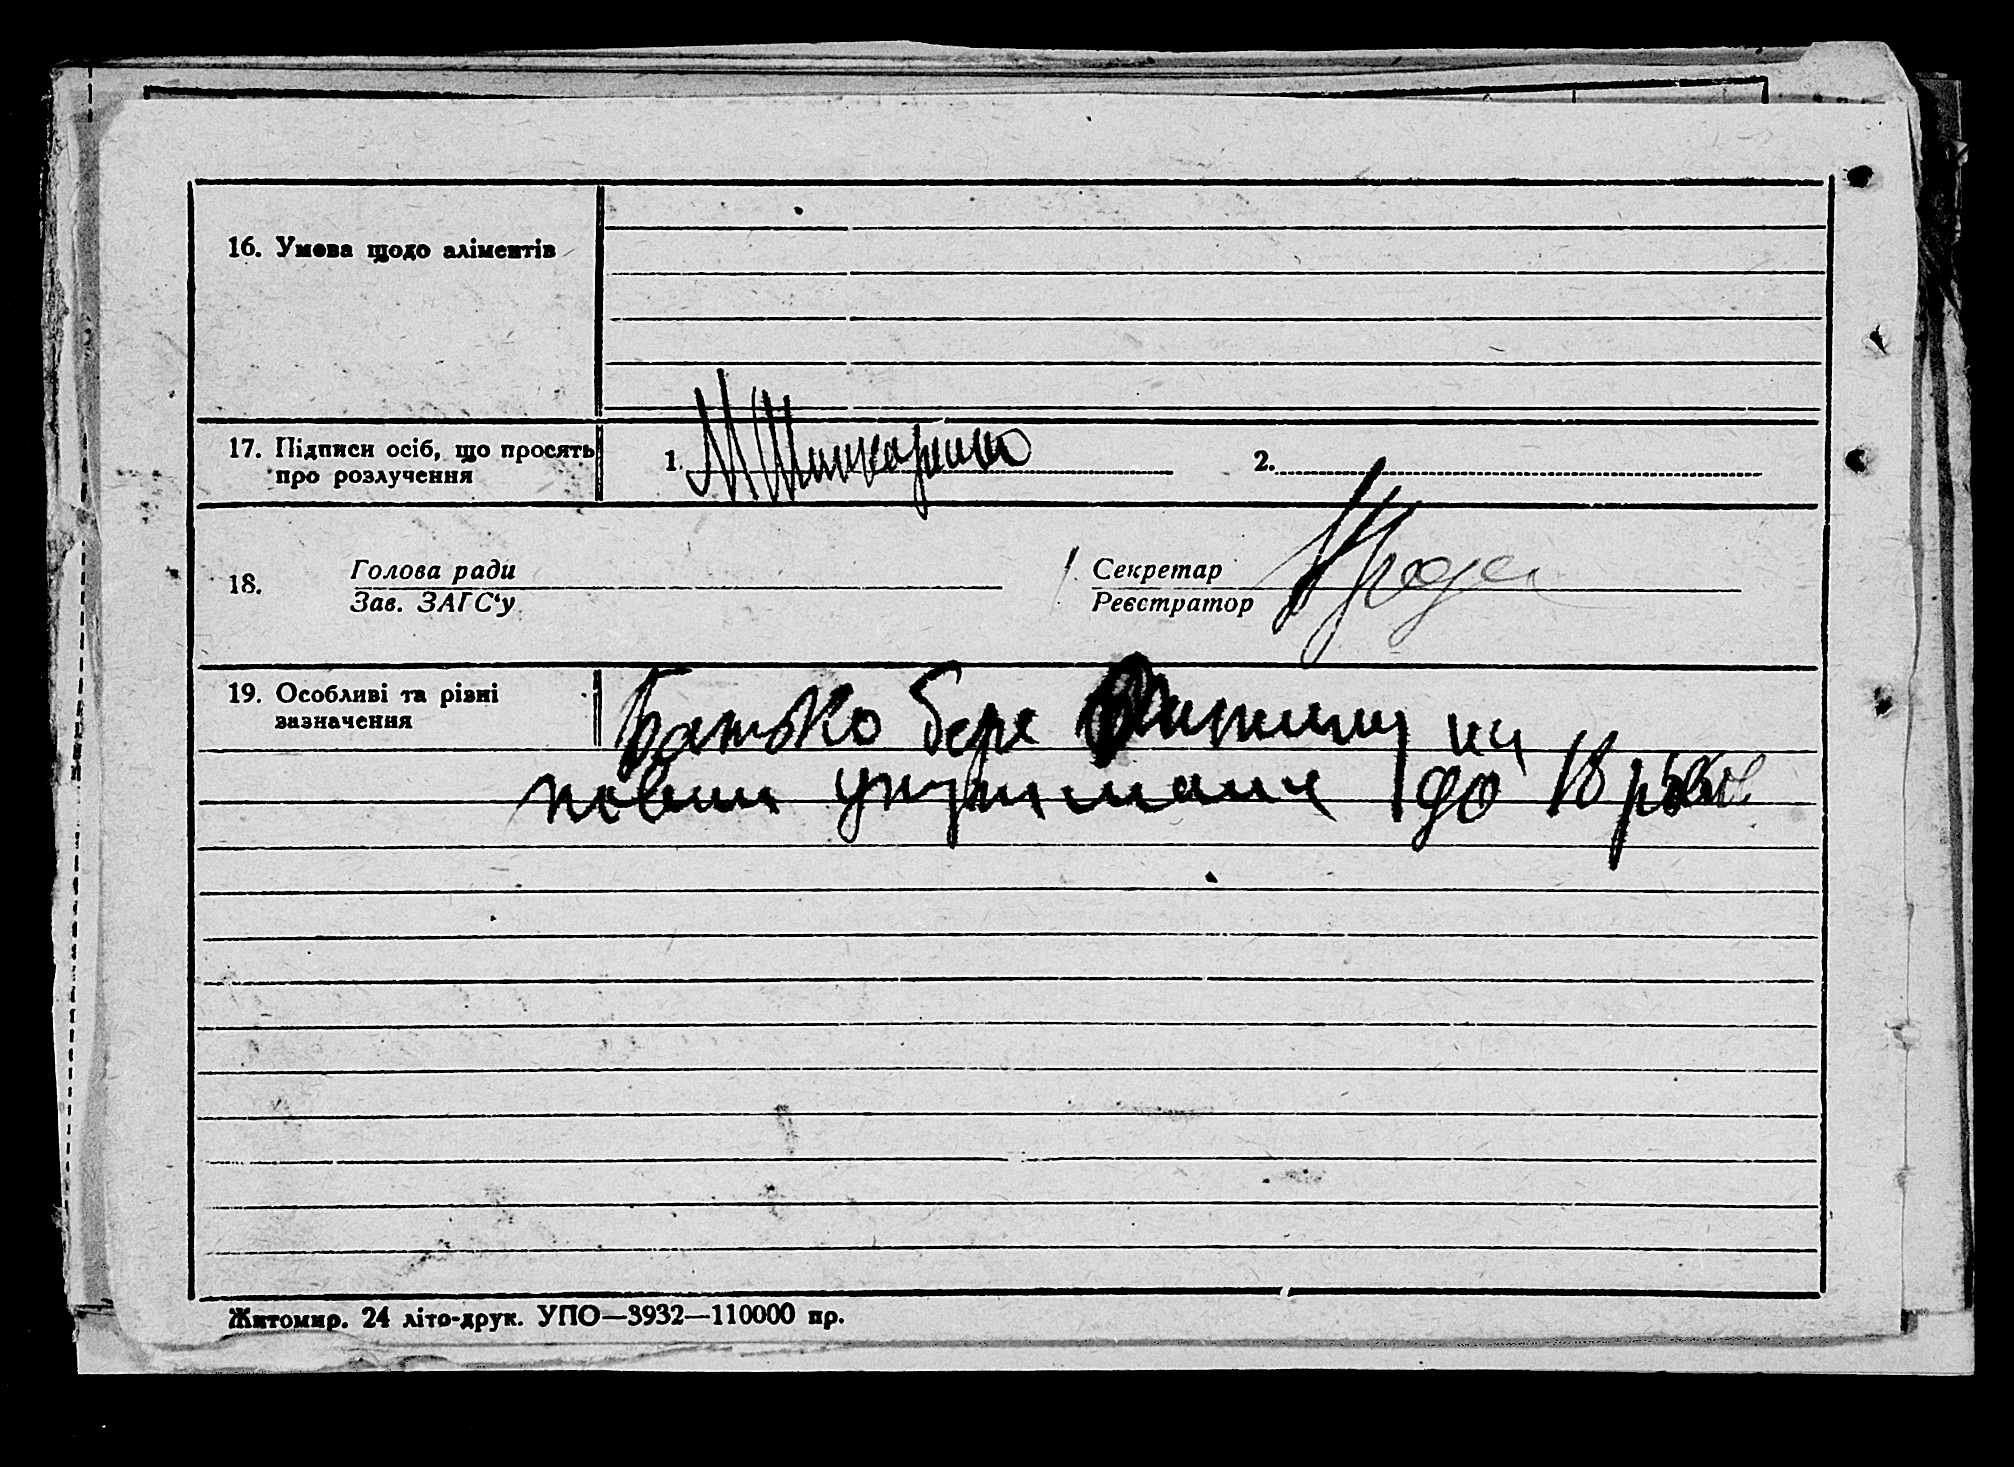 16. Умова щодо аліментів
17. Підписи осіб, що просять про розлучення
1.
2.
18.
Голова ради
Зав. ЗАГС‘у
Секретар
Реєстратор
19. Особливі та різні зазначення
Батько бере дитину на
повне утримання до 18 років
Житомир. 24 літо-друк. УПО—3932—110000 пр.